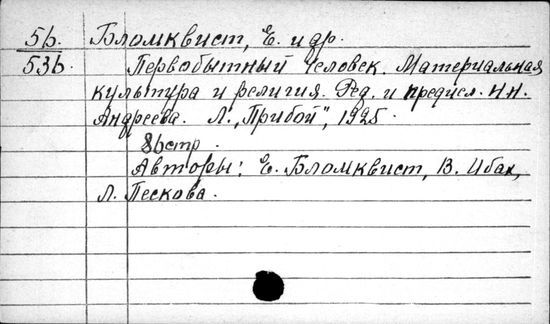 5b. Бломквист, Е. и др.
53b. Первобытный человек. Материальная
культура и религия. Ред. и предисл. Н.Н.
Андреева. Л., „Прибой", 1925.
86 стр.
Авторы: Е. Бломквист, В. Ибах,
Л. Пескова.